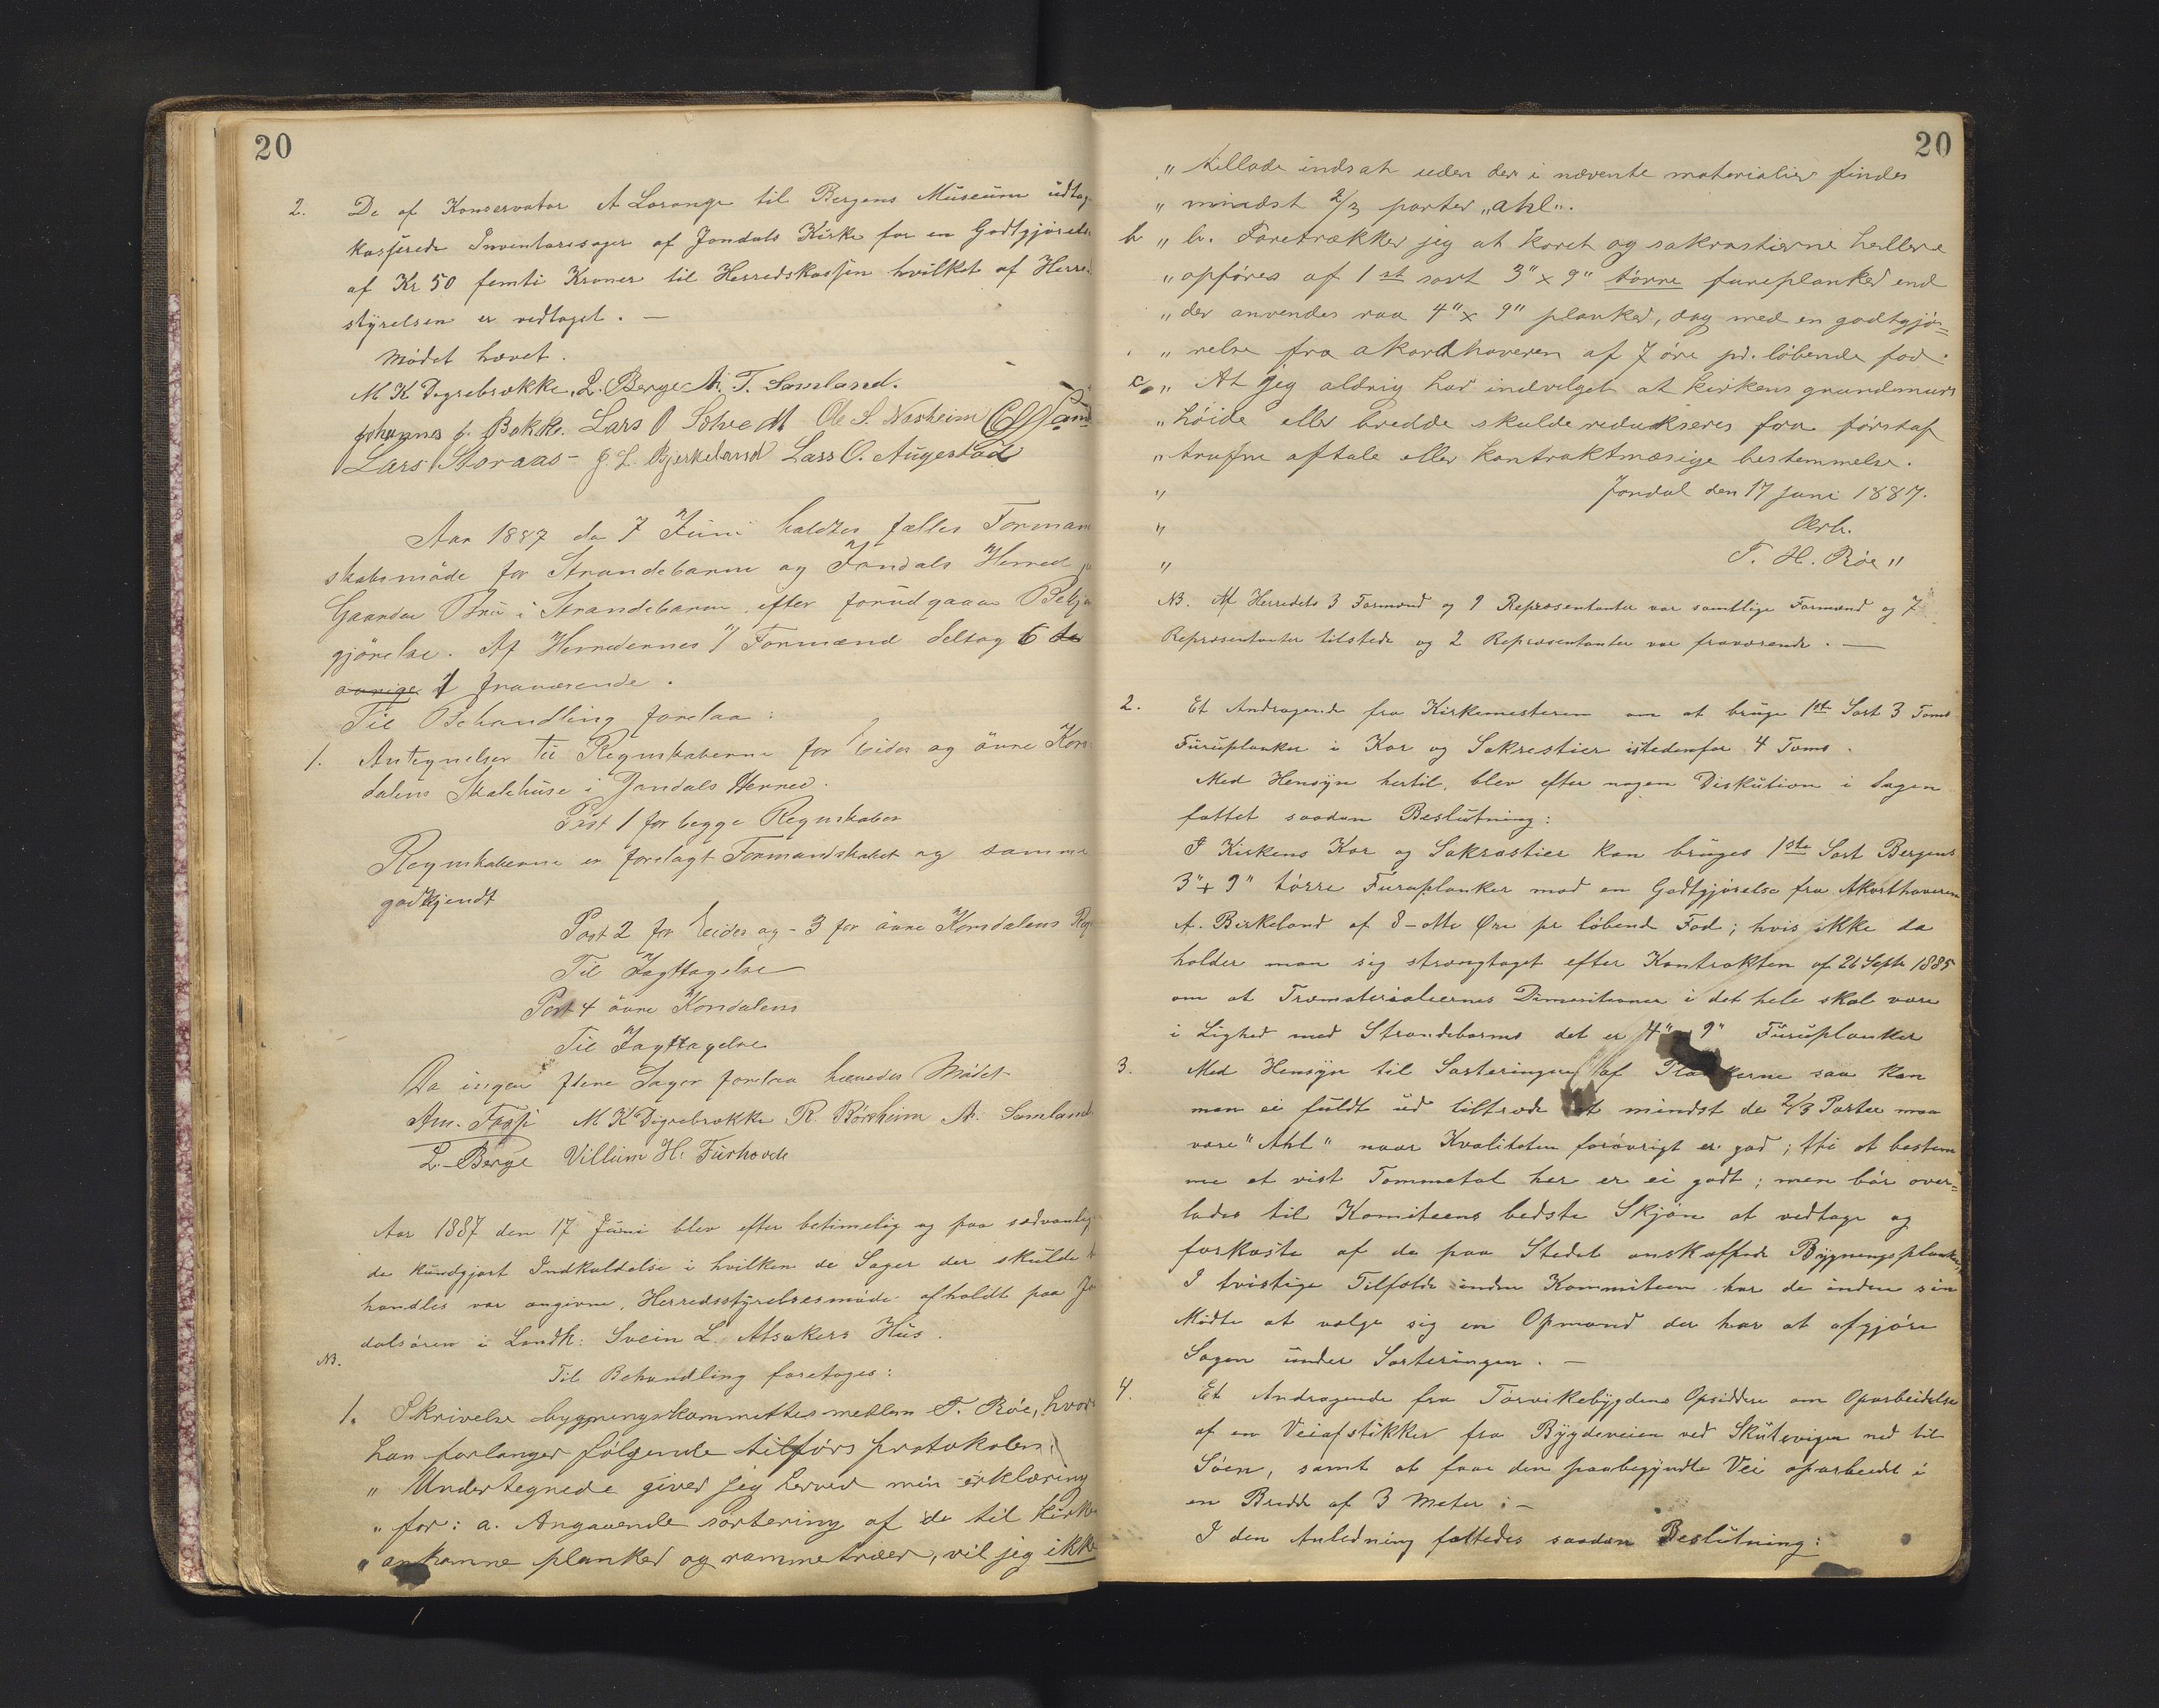 20
2. De af Konservator A Lorange til Bergens Museum udtag
kasserede Inventariesager af Jondals Kirke for en Godtgjørels
af Kr 50 femti Kroner til Herredskassen hvilket af Herre
styrelsen er vedtaget. —
Mødet hævet.
M K Digrebrække, L. Berge N. T. Samland.
Johannes J. Bakke. Lars O Solvedt Ole S. Næsheim
Lars Storaas - J. L. Bjerkeland Lars O. Augestad
Aar 1887 den 7 Juni holdtes fælles Forman
skabsmøde for Strandebarm og Jondals Herred
Gaarden Bru i Strandebarm, efter forudgaaen Bekj
gjørelse. Af Herredernes 7 Formænd deltog 6 de
øvrige 1 fraværende.
Til Behandling forelaa:
1. Antegnelser til Regnskaberne for Eides og øvre Kors
dalens Skolehuse i Jondals Herred.
Post 1 for begge Regnskaber
Regnskaberne er forelagt Formandskabet og samme
godkjendt
Post 2 for Eides og - 3 for øvre Korsdalens Reg
Til Iagttagelse
Post 4 øvre Korsdalens
Til Iagttagelse
Da ingen flere Sager forelaa hævedes Mødet
Am. Fosse M K Digrebrække R. Børsheim N. Samland
L. Berge Villum H. Furhovde
Aar 1887 den 17 Juni blev efter betimelig og paa sædvanlig
de kundgjort Indkaldelse i hvilken de Sager der skulde
handles var angivne, Herredsstyrelsesmøde afholdt paa Jo
dalsøren i Landh: Svein L. Alsakers Hus.
NB.
Til Behandling foretoges:
1. Skrivelse bygningskommittesmedlem T. Røe, hvor
han forlanger følgende tilførs protokolen:
" Undertegnede giver jeg herved min erklæring
" for: a. Angaaende sortering af de til kirke
" ankomne planker og rammetræer, vil jeg ikke
20
" tillade indsat uden der i nævente materialier findes
" mindst 2/3 parter "ahl".
b " b. Foretrækker jeg at koret og sakrastierne hellere
" opføres af 1st sort 3" x 9" tørre fureplanker end
" der anvendes raa 4" x 9" planker, dog med en godtgjø=
" relse fra akordhaveren af 7 øre pr. løbende fod.
c. " At jeg aldrig har indvelget at kirkens grundmurs
" høide eller bredde skulde reduckseres fra først af
" trufne aftale eller kontraktmæsige bestemmelse.
" Jondal den 17 juni 1887.
" Ærb.
" T. H. Røe "
NB. Af Herredets 3 Formænd og 9 Repræsentanter var samtlige Formænd og 7
Repræsentanter tilstede og 2 Repræsentanter var fraværende. —
2. Et Andragende fra Kirkemesteren om at bruge 1ste Sort 3 Toms
Furuplanker i Kor og Sakrestier istedenfor 4 Toms.
Med Hensyn hertil, blev efter nogen Diskution i Sagen
fattet saadan Beslutning:
I Kirkens Kor og Sakrastier kan bruges 1ste Sort Bergens
3" + 9" tørre Furuplanker mod en Godtgjørelse fra Akorthaveren
A. Birkeland af 8 - otte Øre pr løbend Fod; hvis ikke da
holder man sig strængtaget efter Kontrakten af 26 Septr 1885
om at Træmaterialiernes Dimensitioner i det hele skal være
i Lighed med Strandebarms det er 4" 9" Furuplanker
3. Med Hensyn til Sorteringen af Plankerne saa kan
man ei fuldt ud tiltræde at mindst de 2/3 Parter maa
være "Ahl" naar Kvaliteten forøvrigt er god; thi at bestem
me et vist Tommetal her er ei godt; men bør over=
lades til Komiteens bedste Skjøn at vedtage og
forkaste af de paa Stedet anskaffede Bygningsplanker,
I tvistige Tilfælde inden Kommiteen har de inden sin
Midte at vælge sig en Opmand der har at afgjøre
Sagen under Sorteringen. —
4. Et Andragende fra Torvikebygdens Opsiddere om Oparbeidelse
af en Veiafstikker fra Bygdeveien ved Skutevigen ned til
Søen, samt at faae den paabegyndte Vei oparbeidt i
en Bredde af 3 Meter: -
I den Anledning fattedes saadan Beslutning: